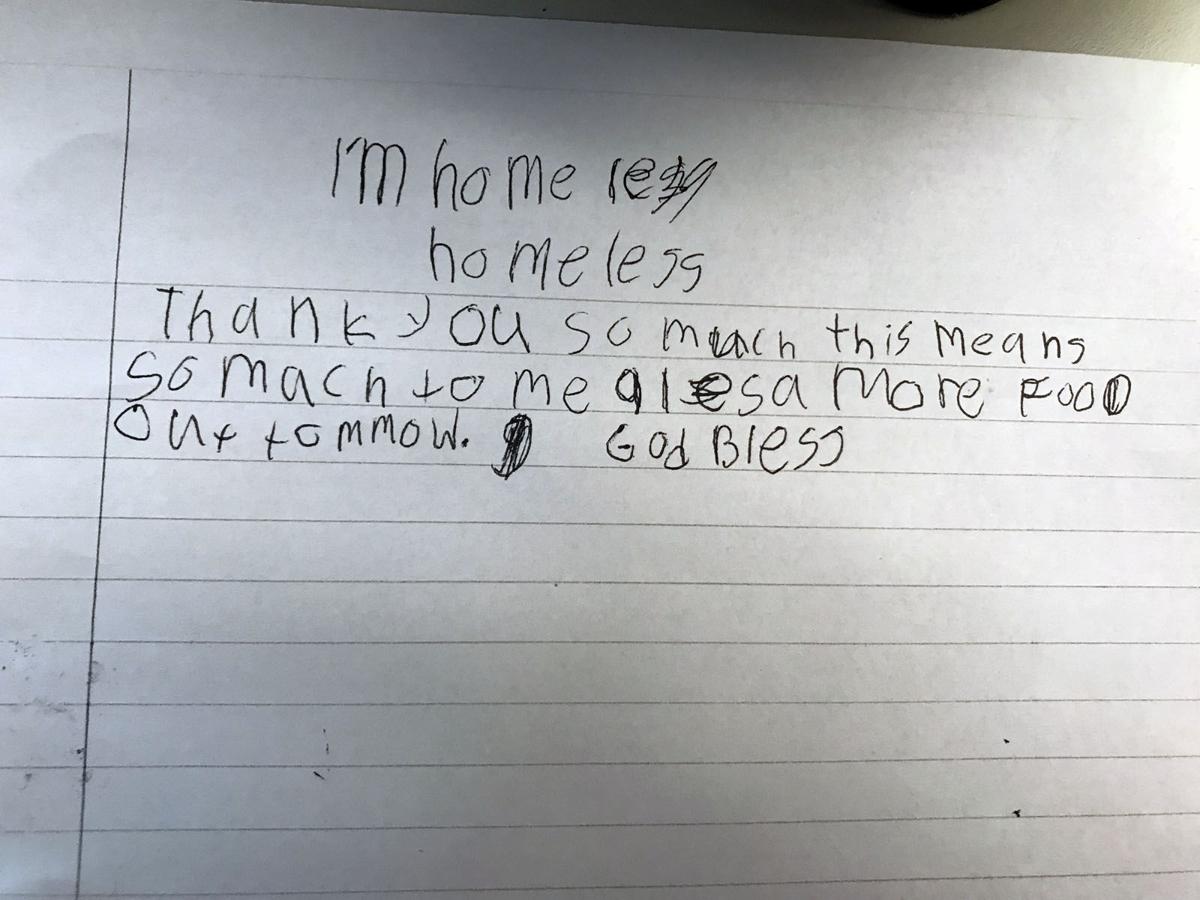 I'm home less
homeless
Thank you so much this means
so mach to me alesa more Food
Out tommow. God Bless